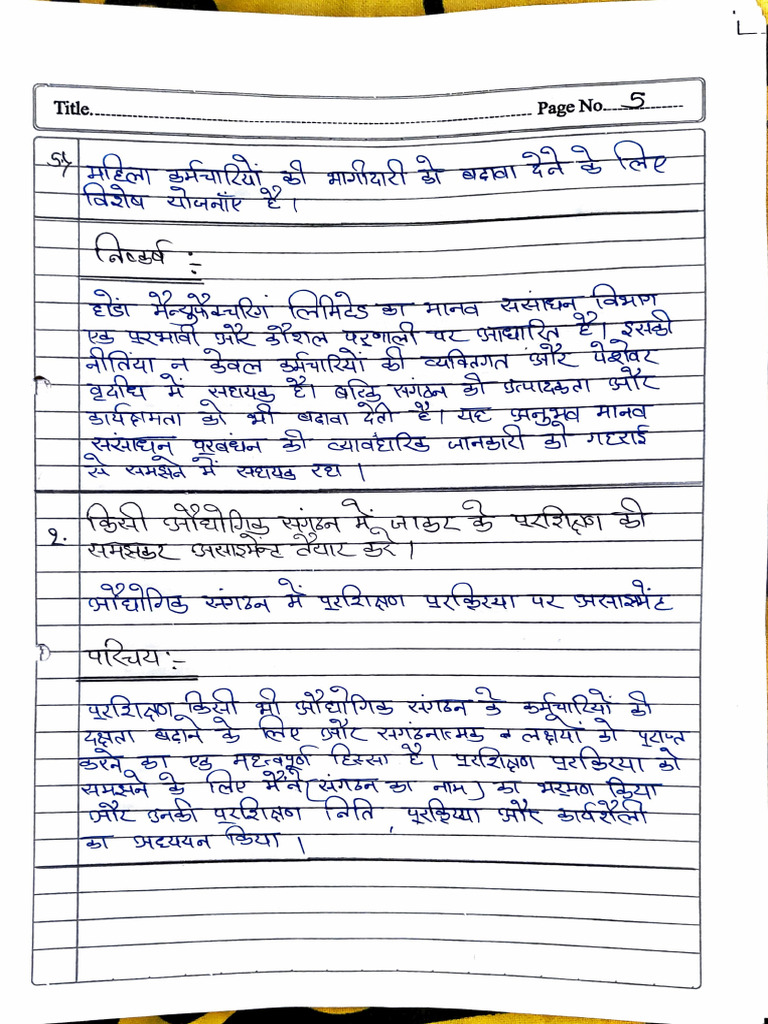 Title. Page No. 5
5) महिला कर्मचारियों की भागीदारी को बढावा देने के लिए
विशेष योजनाँए है।
निष्कर्ष :-
होडां मैन्युफैक्चरिगं लिमिटेड का मानव ससांधन विभाग
एक प्रभावी और कौशल प्रणाली पर आधारित है। इसकी
नीतिंया न केवल कर्मचारियों की व्यक्तिगत और पेशेवर
वृदीध में सहायक है। बल्कि संगठन की उत्पादकता और
कार्यक्षमता को भी बढावा देती है। यह अनुभव मानव
संसांधन प्रबंधन की व्यावहारिक जानकारी को गहराई
से समझने में सहायक रहा।
2. किसी औधोगिक संगठन में जाकर के प्रशिक्षण की
समझकर असाइमेन्ट तैयार करे।
औधोगिक संगठन में प्रशिक्षण प्रक्रिया पर असाइमेंट
1) परिचय:-
प्रशिक्षण किसी भी औधोगिक संगठन के कर्मचारियों की
दक्षता बढाने के लिए और संगठनात्मक लक्षयों को प्राप्त
करने का एक महत्वपूर्ण हिस्सा है। प्रशिक्षण प्रकिरया को
समझने के लिए मैंने (संगठन का नाम) का भ्रमण किया
और उनकी प्रशिक्षण निति, प्रक्रिया और कार्यशैली
का अध्ययन किया।